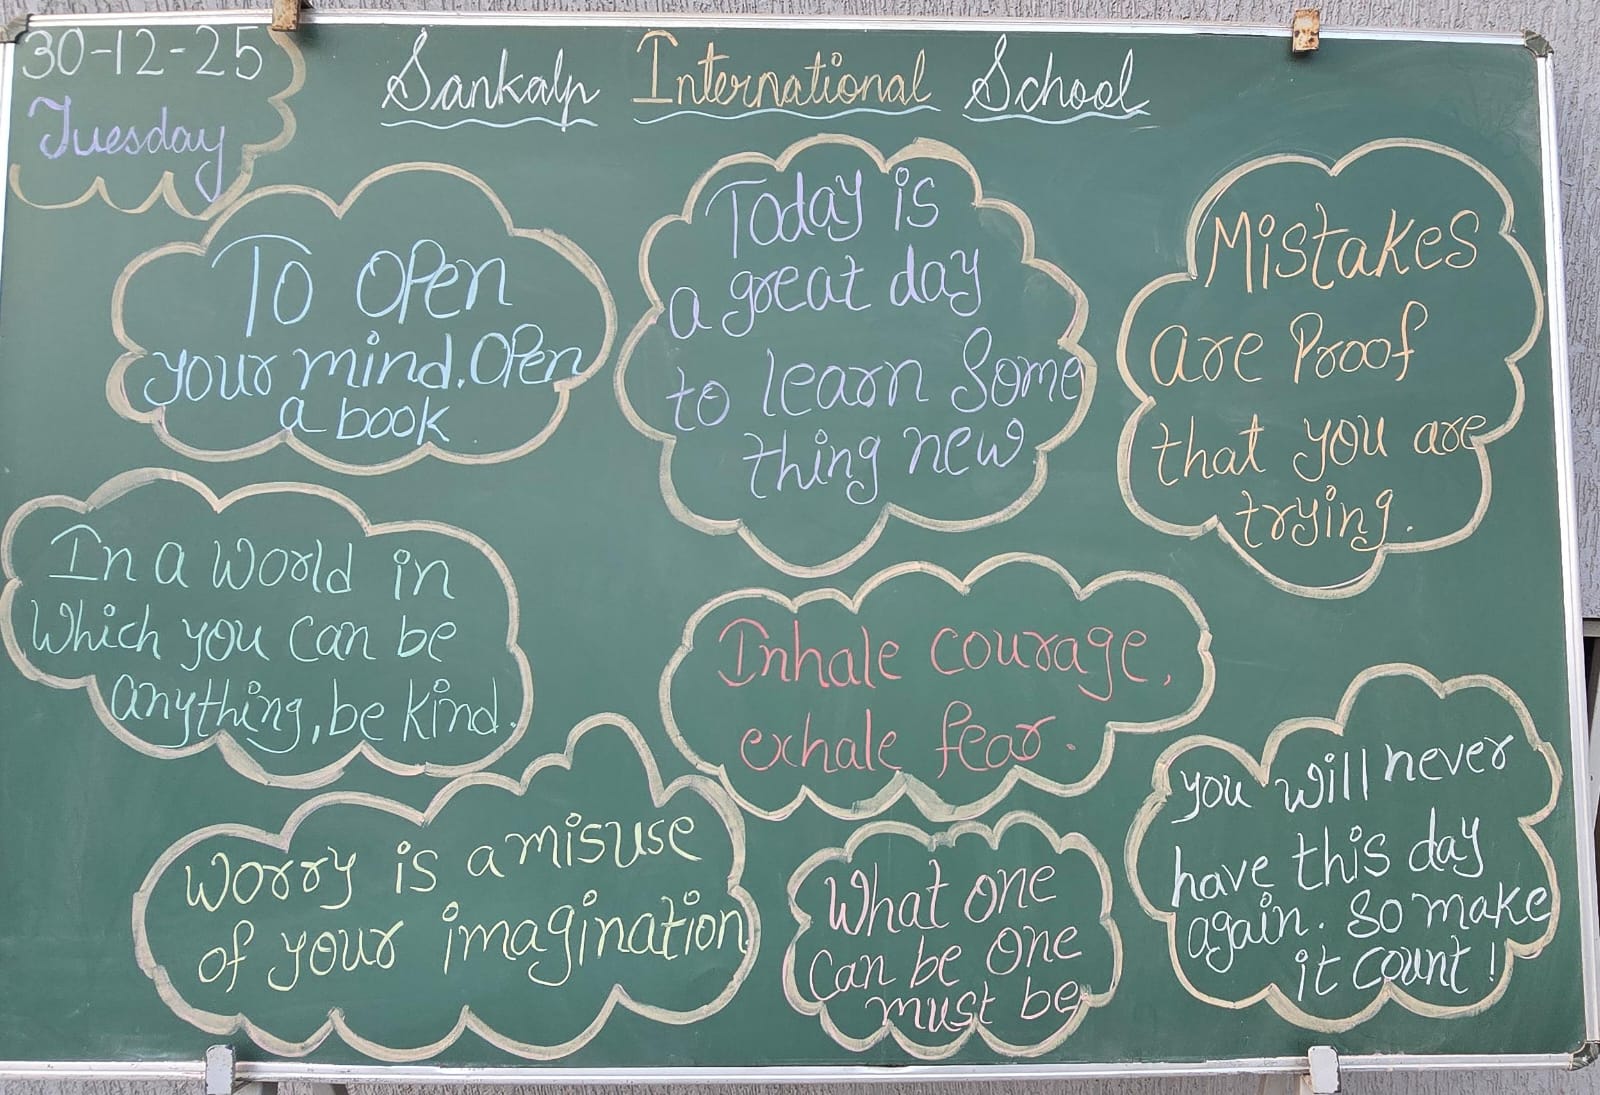 30-12-25
Tuesday
Sankalp International School
To Open
your mind. Open
a book.
Today is
a great day
to learn Some
thing new
Mistakes
are Proof
that you are
trying.
In a World in
Which you can be
anything, be kind.
Inhale courage,
exhale fear.
Worry is a misuse
of your imagination
What one
Can be one
must be
you will never
have this day
again. So make
it count!